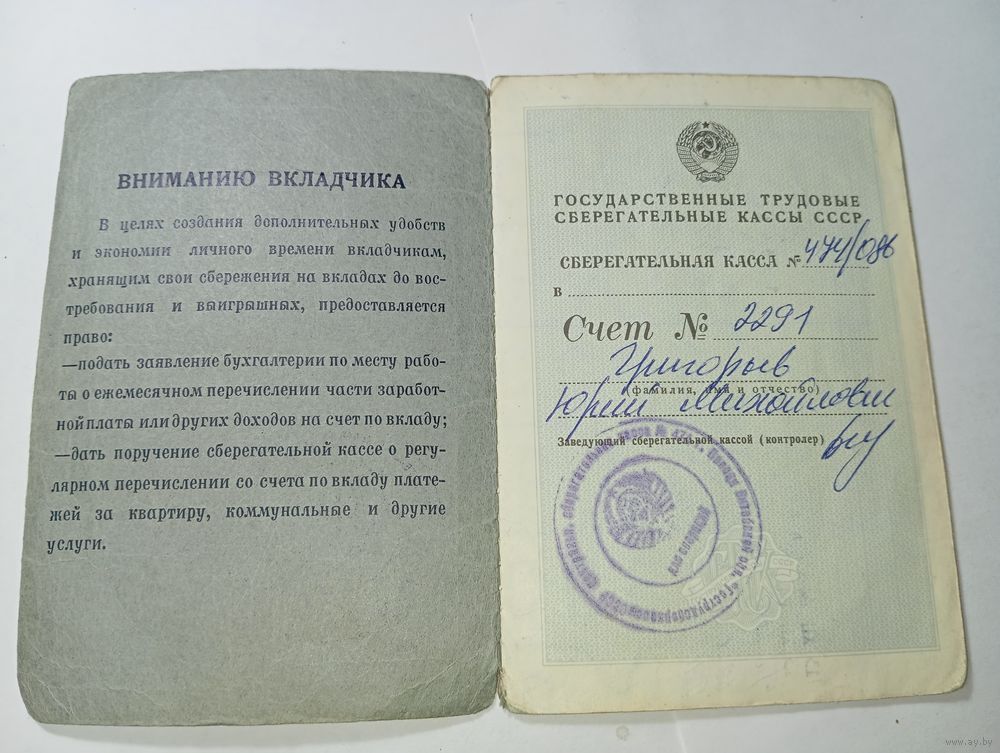 ВНИМАНИЮ ВКЛАДЧИКА
В целях создания дополнительных удобств
и экономии личного времени вкладчикам,
хранящим свои сбережения на вкладах до вос-
требования и выигрышных, предоставляется
право:
—подать заявление бухгалтерии по месту рабо-
ты о ежемесячном перечислении части заработ-
ной платы или других доходов на счет по вкладу;
—дать поручение сберегательной кассе о регу-
лярном перечислении со счета по вкладу плате-
жей за квартиру, коммунальные и другие
услуги.
ГОСУДАРСТВЕННЫЕ ТРУДОВЫЕ
СБЕРЕГАТЕЛЬНЫЕ КАССЫ СССР
СБЕРЕГАТЕЛЬНАЯ КАССА № 474/086
в
Счет № 2291
Григорьев
(фамилия, имя и отчество)
Юрий Михайлович
Заведующий сберегательной кассой (контролер)
www.ay.by